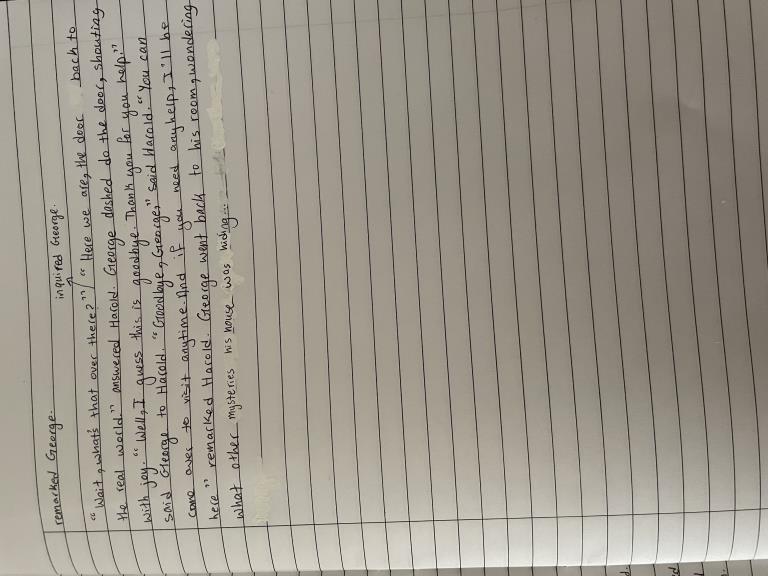 remarked George.
inquired George.
"Wait, what's that over there?" / "Here we are, the door back to
the real world." answered Harold. George dashed do the door, shouting
with joy. "Well, I guess this is goodbye. Thank you for you help."
said George to Harold. "Goodbye, George," said Harold. "You can
come over to visit anytime. And if you need any help, I'll be
here" remarked Harold. George went back to his room, wondering
what other mysteries his house was hiding...